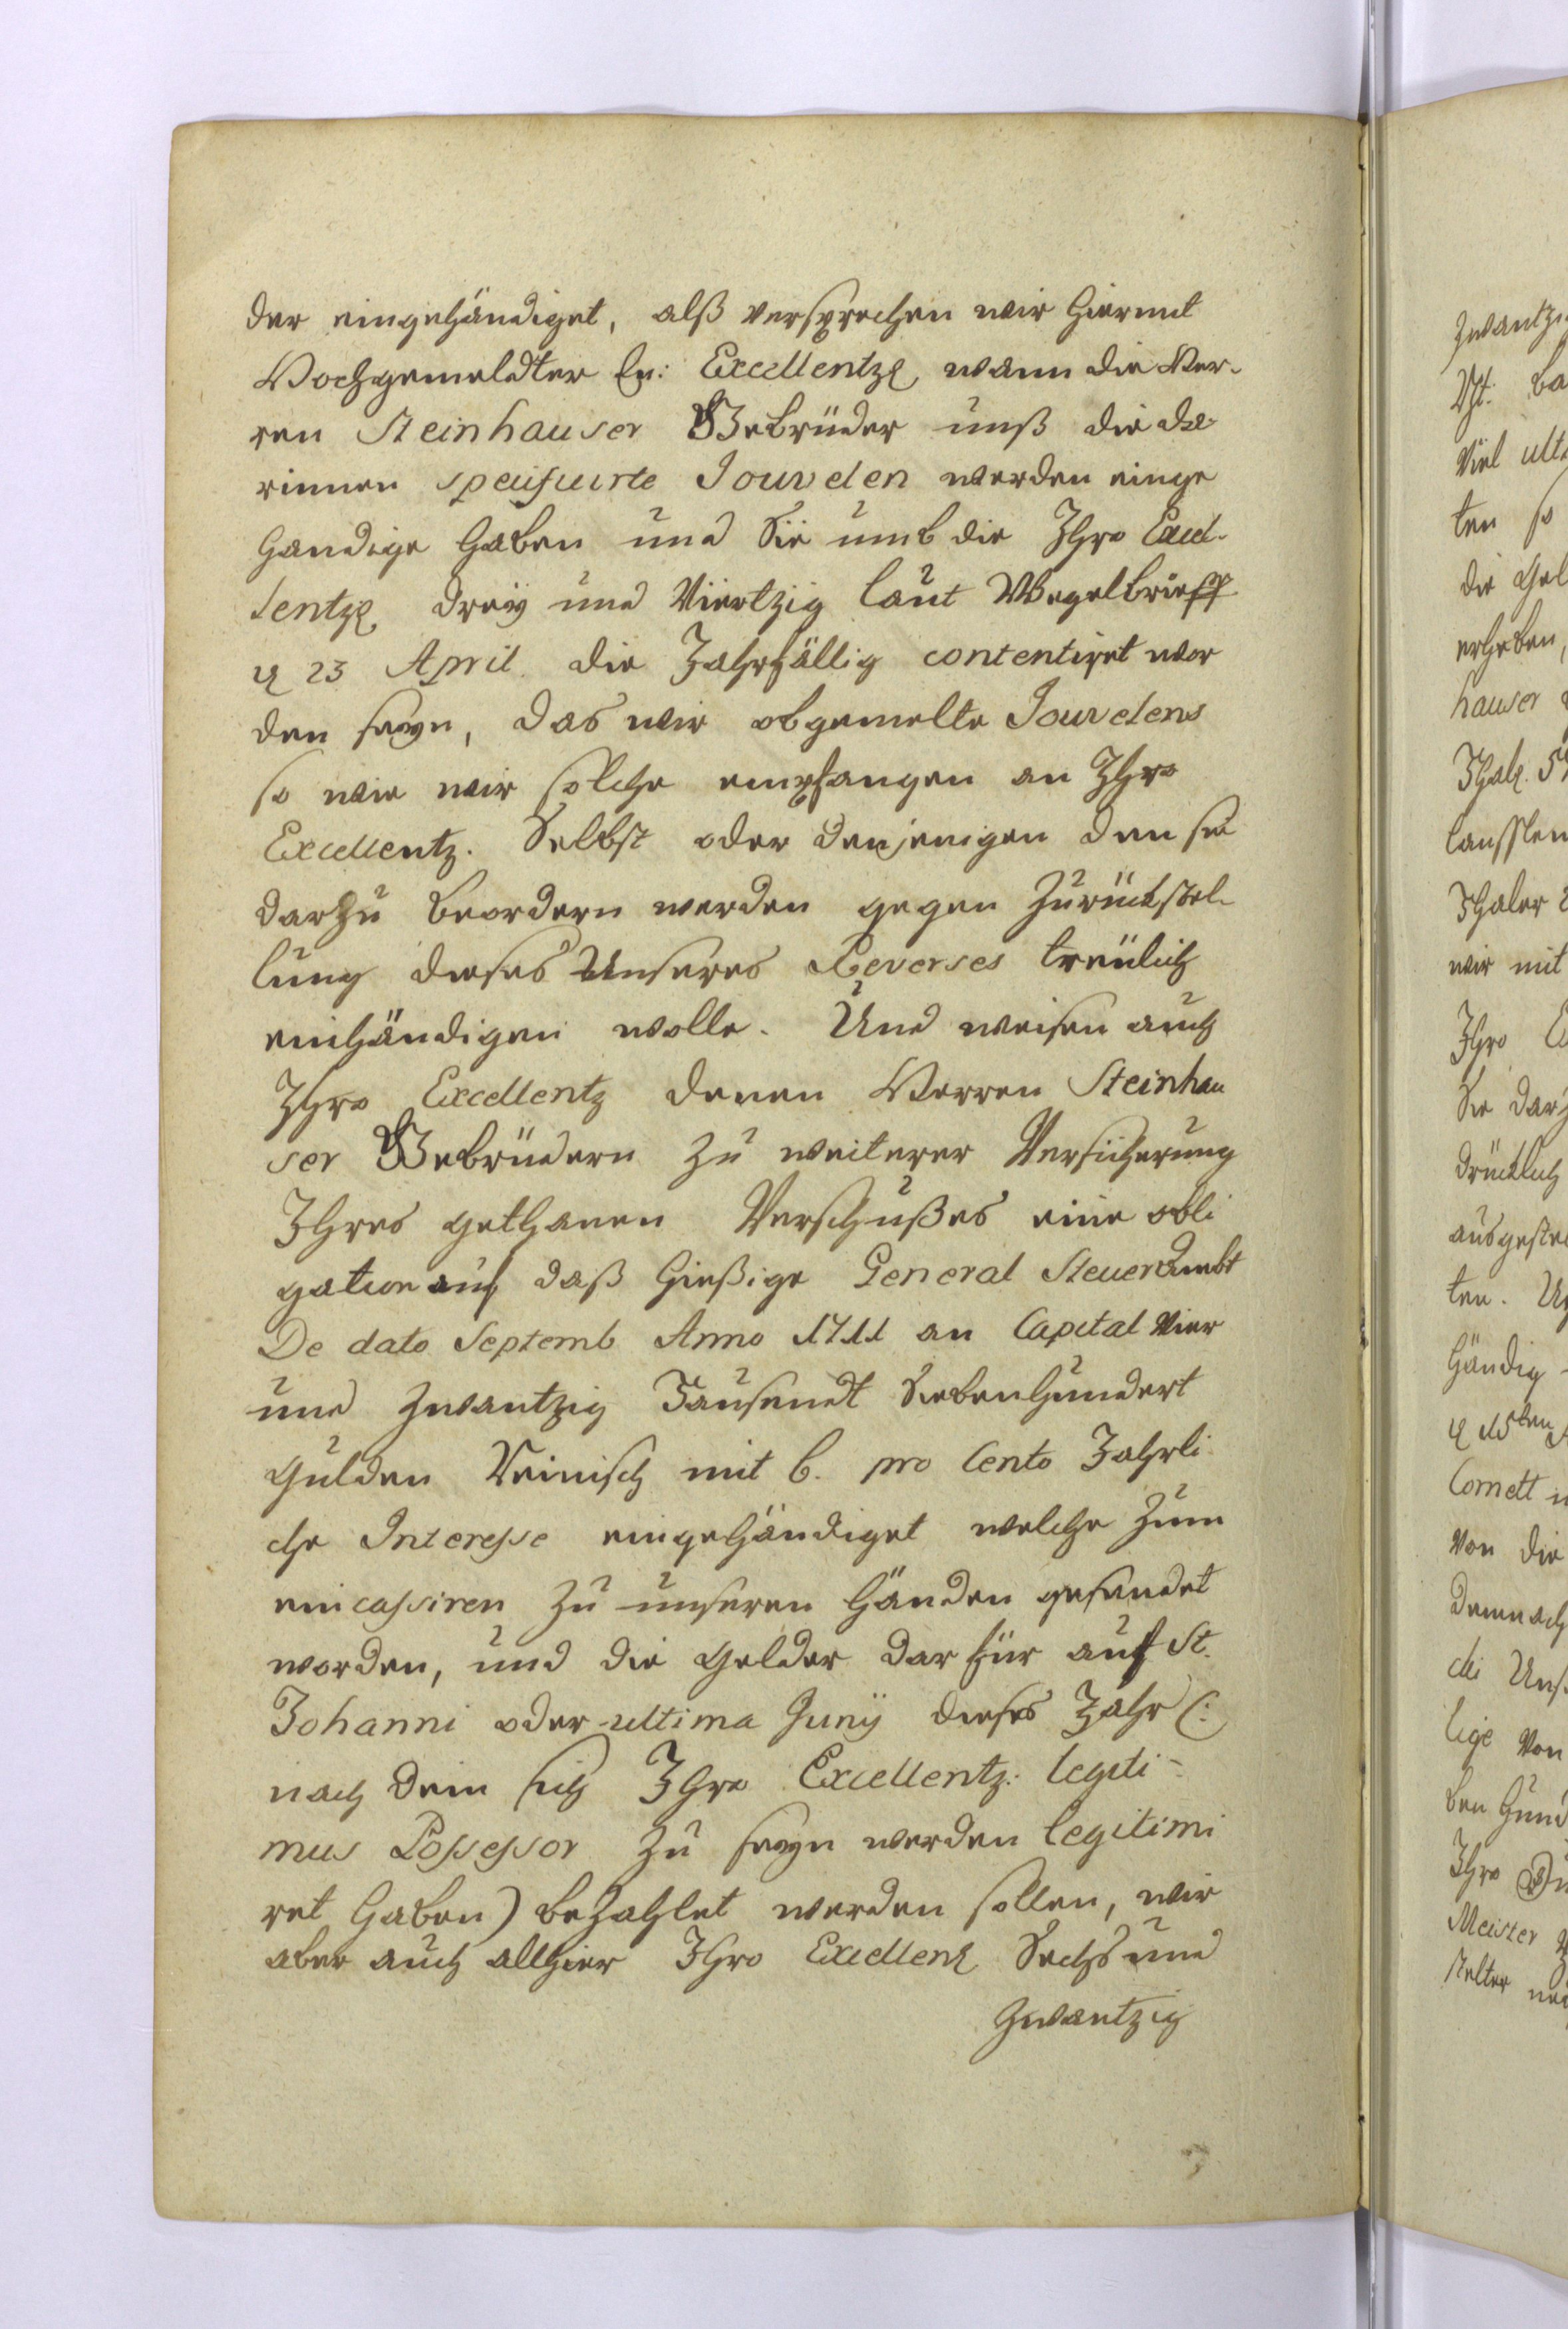 der eingehändiget, alß versprechen wir hiermit
Hochgemeldter Er: Excellentz, wann die Her-
ren Steinhauser Gebrüder unß die da
rinnen specificirte Jouvelen werden einge
händige haben und Sie umb die Ihro Excel-
lentz, dreÿ und Viertzig laut Wegelbrieff
23 April die Jahrfällig contentiret wor
den seyn, das wir obgemelte Jouvelens
so wie wir solche empfangen an Ihro
Excellentz. Selbst oder denjenigen den sie
darzu beordern werden gegen Zurückstel-
lung dieses Unseres Reverses treülich
einhändigen wolle. Und weisen auch
Ihro Excellentz denen Herren Steinhau
ser Gebrüdern zu weiterer Versicherung
Ihres gethanen Verschußes eine obli
gation auf daß hießige General Steuer Ambt
De dato Septemb Anno 1711 an Capital Vier
und zwantzig Tausendt Siebenhundert
Gulden Reinisch mit 6. pro Cento Jahrli
che Interesse eingehändiget welche zum
eincassiren zu unseren Händen gesendet
worden, und die Gelder dar für auf St.
Johanni oder ultima Junÿ dieses Jahr (:
nach dem sich Ihro Excellentz: legiti-
mus Possessor zu seyn werden legitimi
ret haben) bezahlet werden sollen, wir
aber auch allhier Ihro Excellenz Sechs und
Zwantzig
zwantzi
Viel ult
ten so
die Gel
erheben,
hauser
Thaler
wir mit
Ihro
Sie darz
drücklich
ausgestel
ten.
händig
Cornett
von die
demnach
lige von
ben hund
Ihro
Meister
stelter